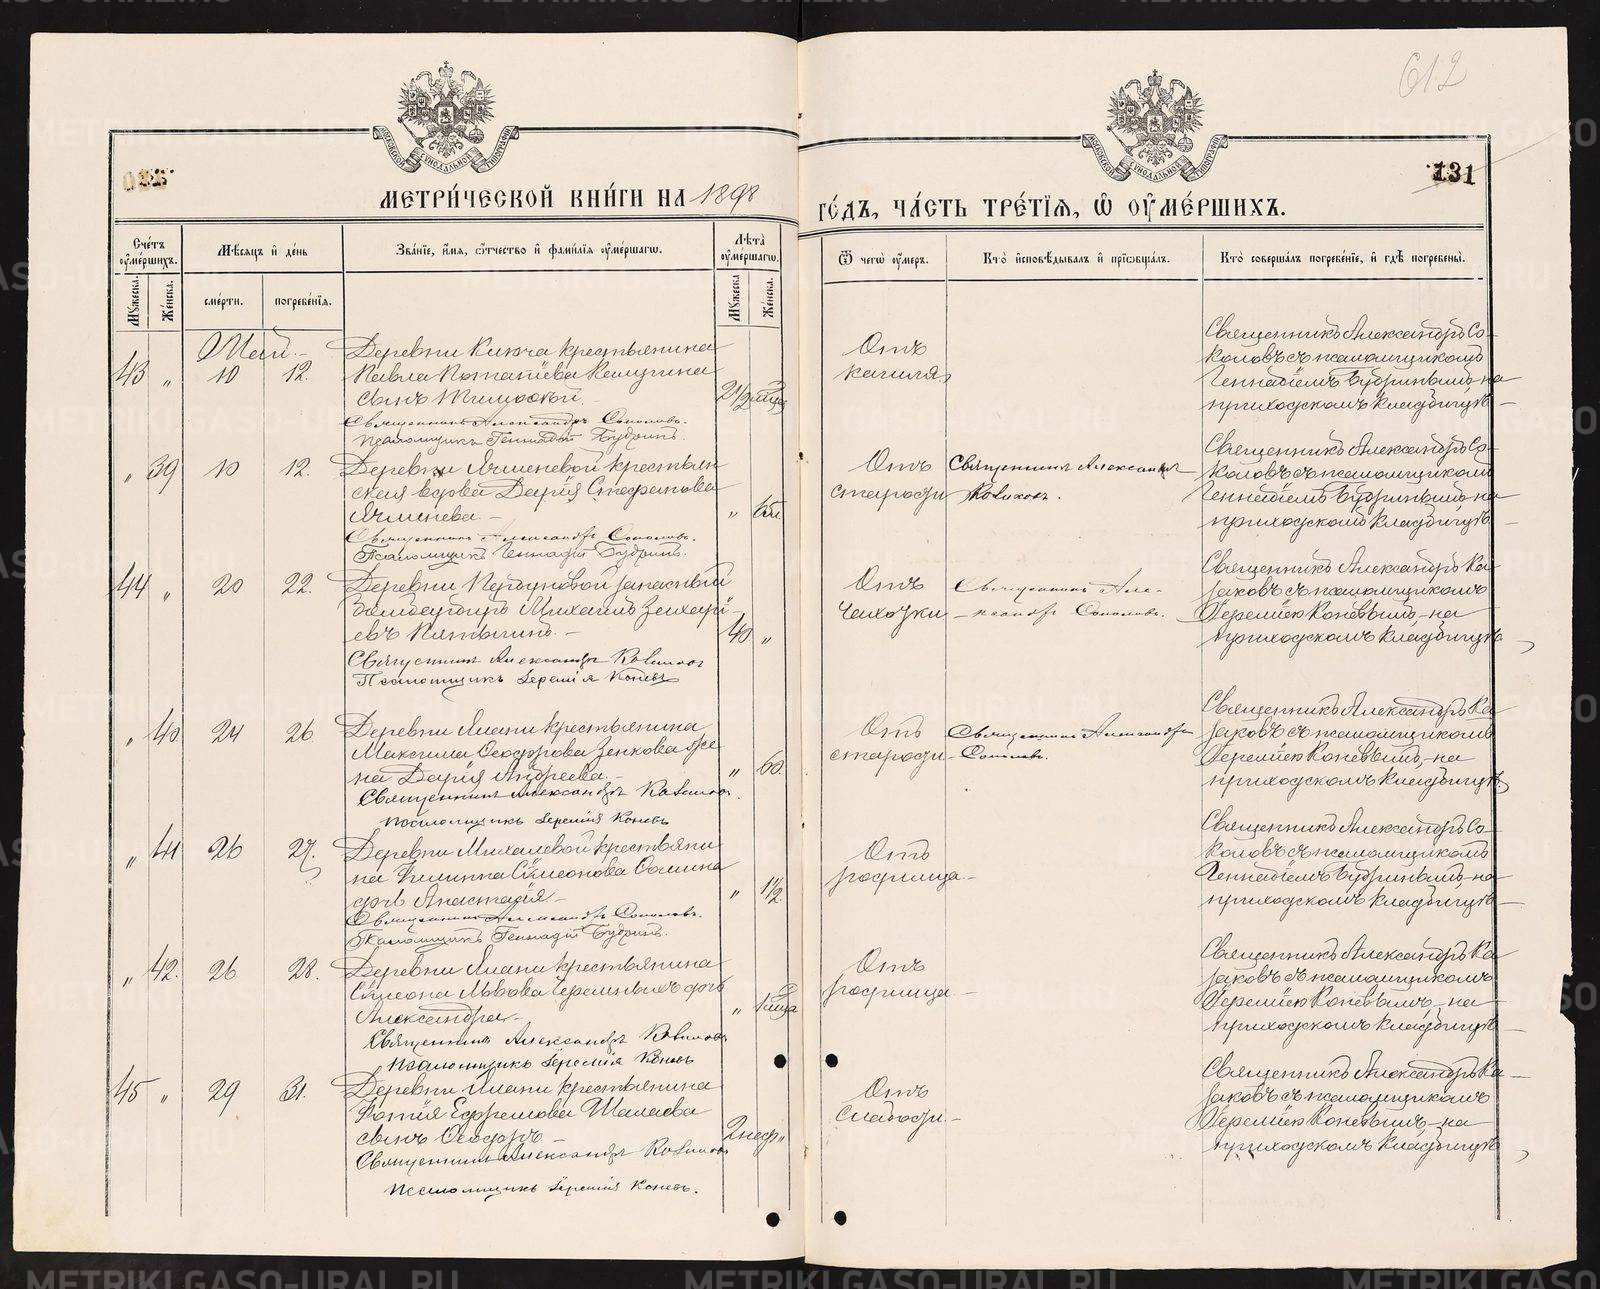 612
131
МЕТРИ́ЧЕСКОЙ КНИ́ГИ НА 1898
ГО́ДЪ, ЧА́СТЬ ТРЕ́ТІЯ, Ѿ ОУМЕ́РШИХЪ.
Сче́тъ оуме́ршихъ.
Мꙋжеска.
Же́нска.
Мѣ́сяцъ и де́нь
сме́рти.
погребе́нія.
Зва́ніе, и́мя, ѻ́тчество и фами́лія оуме́ршагѡ.
Лѣта̀ оуме́ршагѡ.
Мꙋжеска
Же́нска.
Ѿ чегѡ̀ оу́меръ.
Кто̀ исповѣ́дывалъ и приобща́лъ.
Кто̀ соверша́лъ погребе́ніе, и гдѣ̀ погребены̀.
Май.
43 „ 10 12.
Деревни Ключа крестьянина
Павла Потапіева
сынъ
Священникъ Александръ Соколовъ.
Псаломщикъ Геннадій Бубринъ.
2 1/2
Отъ
кашля
Священникъ Александръ Со-
коловъ съ псаломщикомъ
Геннадіемъ Бубринымъ, на
приходскомъ кладбищѣ
„ 39 10 12.
Деревни Ячменевой крестьян
ская вдова Дарія Стефанова
Ячменева.
Священникъ Александръ Соколовъ.
Псаломщикъ Геннадій Бубринъ.
„ 65
Отъ
старости
Священникъ Александръ
Казаковъ.
Священникъ Александръ Со-
коловъ съ псаломщикомъ
Геннадіемъ Бубринымъ на
приходскомъ кладбищѣ
44 „ 20 22.
Деревни запасный
Михаилъ Захарі-
евъ Пятыгинъ.
Священникъ Александръ Казаковъ
Псаломщикъ Іеремія Коневъ
40 „
Отъ
чахотки
Священникъ Але-
ксандръ Соколовъ.
Священникъ Александръ Ка-
заковъ съ псаломщикомъ
Іереміею Коневымъ, на
приходскомъ кладбищѣ
„ 40 24 26
Деревни Яланы крестьянина
Максима Ѳеодорова Зенкова же
на Дарія Андреева.
Священникъ Александръ Казаковъ.
псаломщикъ Іеремія Коневъ
„ 60.
Отъ
старости
Священникъ Александръ
Соколовъ.
Священникъ Александръ Ка
заковъ съ псаломщикомъ
Іереміею Коневымъ, на
приходскомъ кладбищѣ
„ 41 26 27.
Деревни Михалевой крестьяни
на Симеонова
дочь Анастасія
Священникъ Александръ Соколовъ.
Псаломщикъ Геннадій Бубринъ.
„ 1 1/2
Отъ
родимца
Священникъ Александръ Со-
коловъ съ псаломщикомъ
Геннадіемъ Бубринымъ, на
приходскомъ кладбищѣ
„ 42. 26 28.
Деревни Яланы крестьянина
Симеона Львова Черемныхъ дочь
Александра
Священникъ Александръ Казаковъ
псаломщикъ Іеремія Коневъ
Отъ
родимца
Священникъ Александръ Ка
заковъ съ псаломщикомъ
Іереміею Коневымъ, на
приходскомъ кладбищѣ
45 „ 29 31.
Деревни Яланы крестьянина
Фотія Ефремова Шалаева
сынъ Ѳеодоръ
Священникъ Александръ Казаковъ
псаломщикъ Іеремія Коневъ.
2 нед „
Отъ
слабости.
Священникъ Александръ Ка
заковъ съ псаломщикомъ
Іереміею Коневымъ, на
приходскомъ кладбищѣ
METRIKI.GASO-URAL.RU